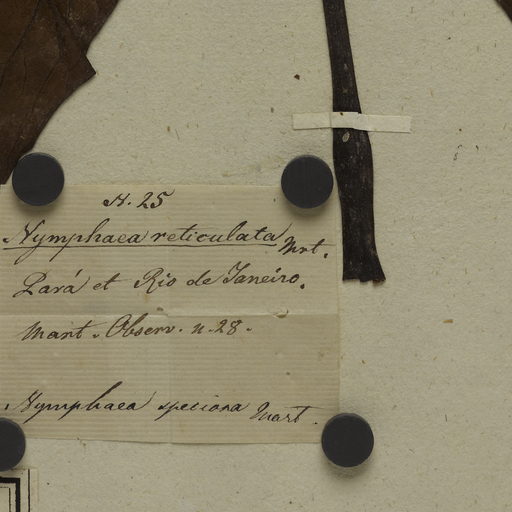 N. 25
Nymphaea reticulata Mrt.
Pará et Rio de Janeiro.
Mart. Observ. n. 28.
Nymphaea speciosa Mart.